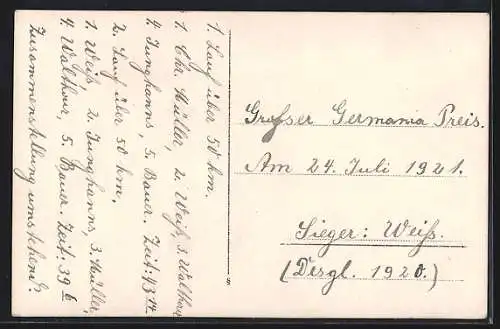 1. Lauf über 50 km.
1. Chr. Müller, 2. Weiß, 3. Walthour
4. Junghanns, 5. Bauer. Zeit:
2. Lauf über 50 km.
1. Weiß, 2. Junghanns, 3. Müller,
4. Walthour, 5. Bauer. Zeit: 39
Zusammenstellung umstehend?
Großer Germania Preis.
Am 24. Juli 1921.
Sieger: Weiß.
(Desgl. 1920.)